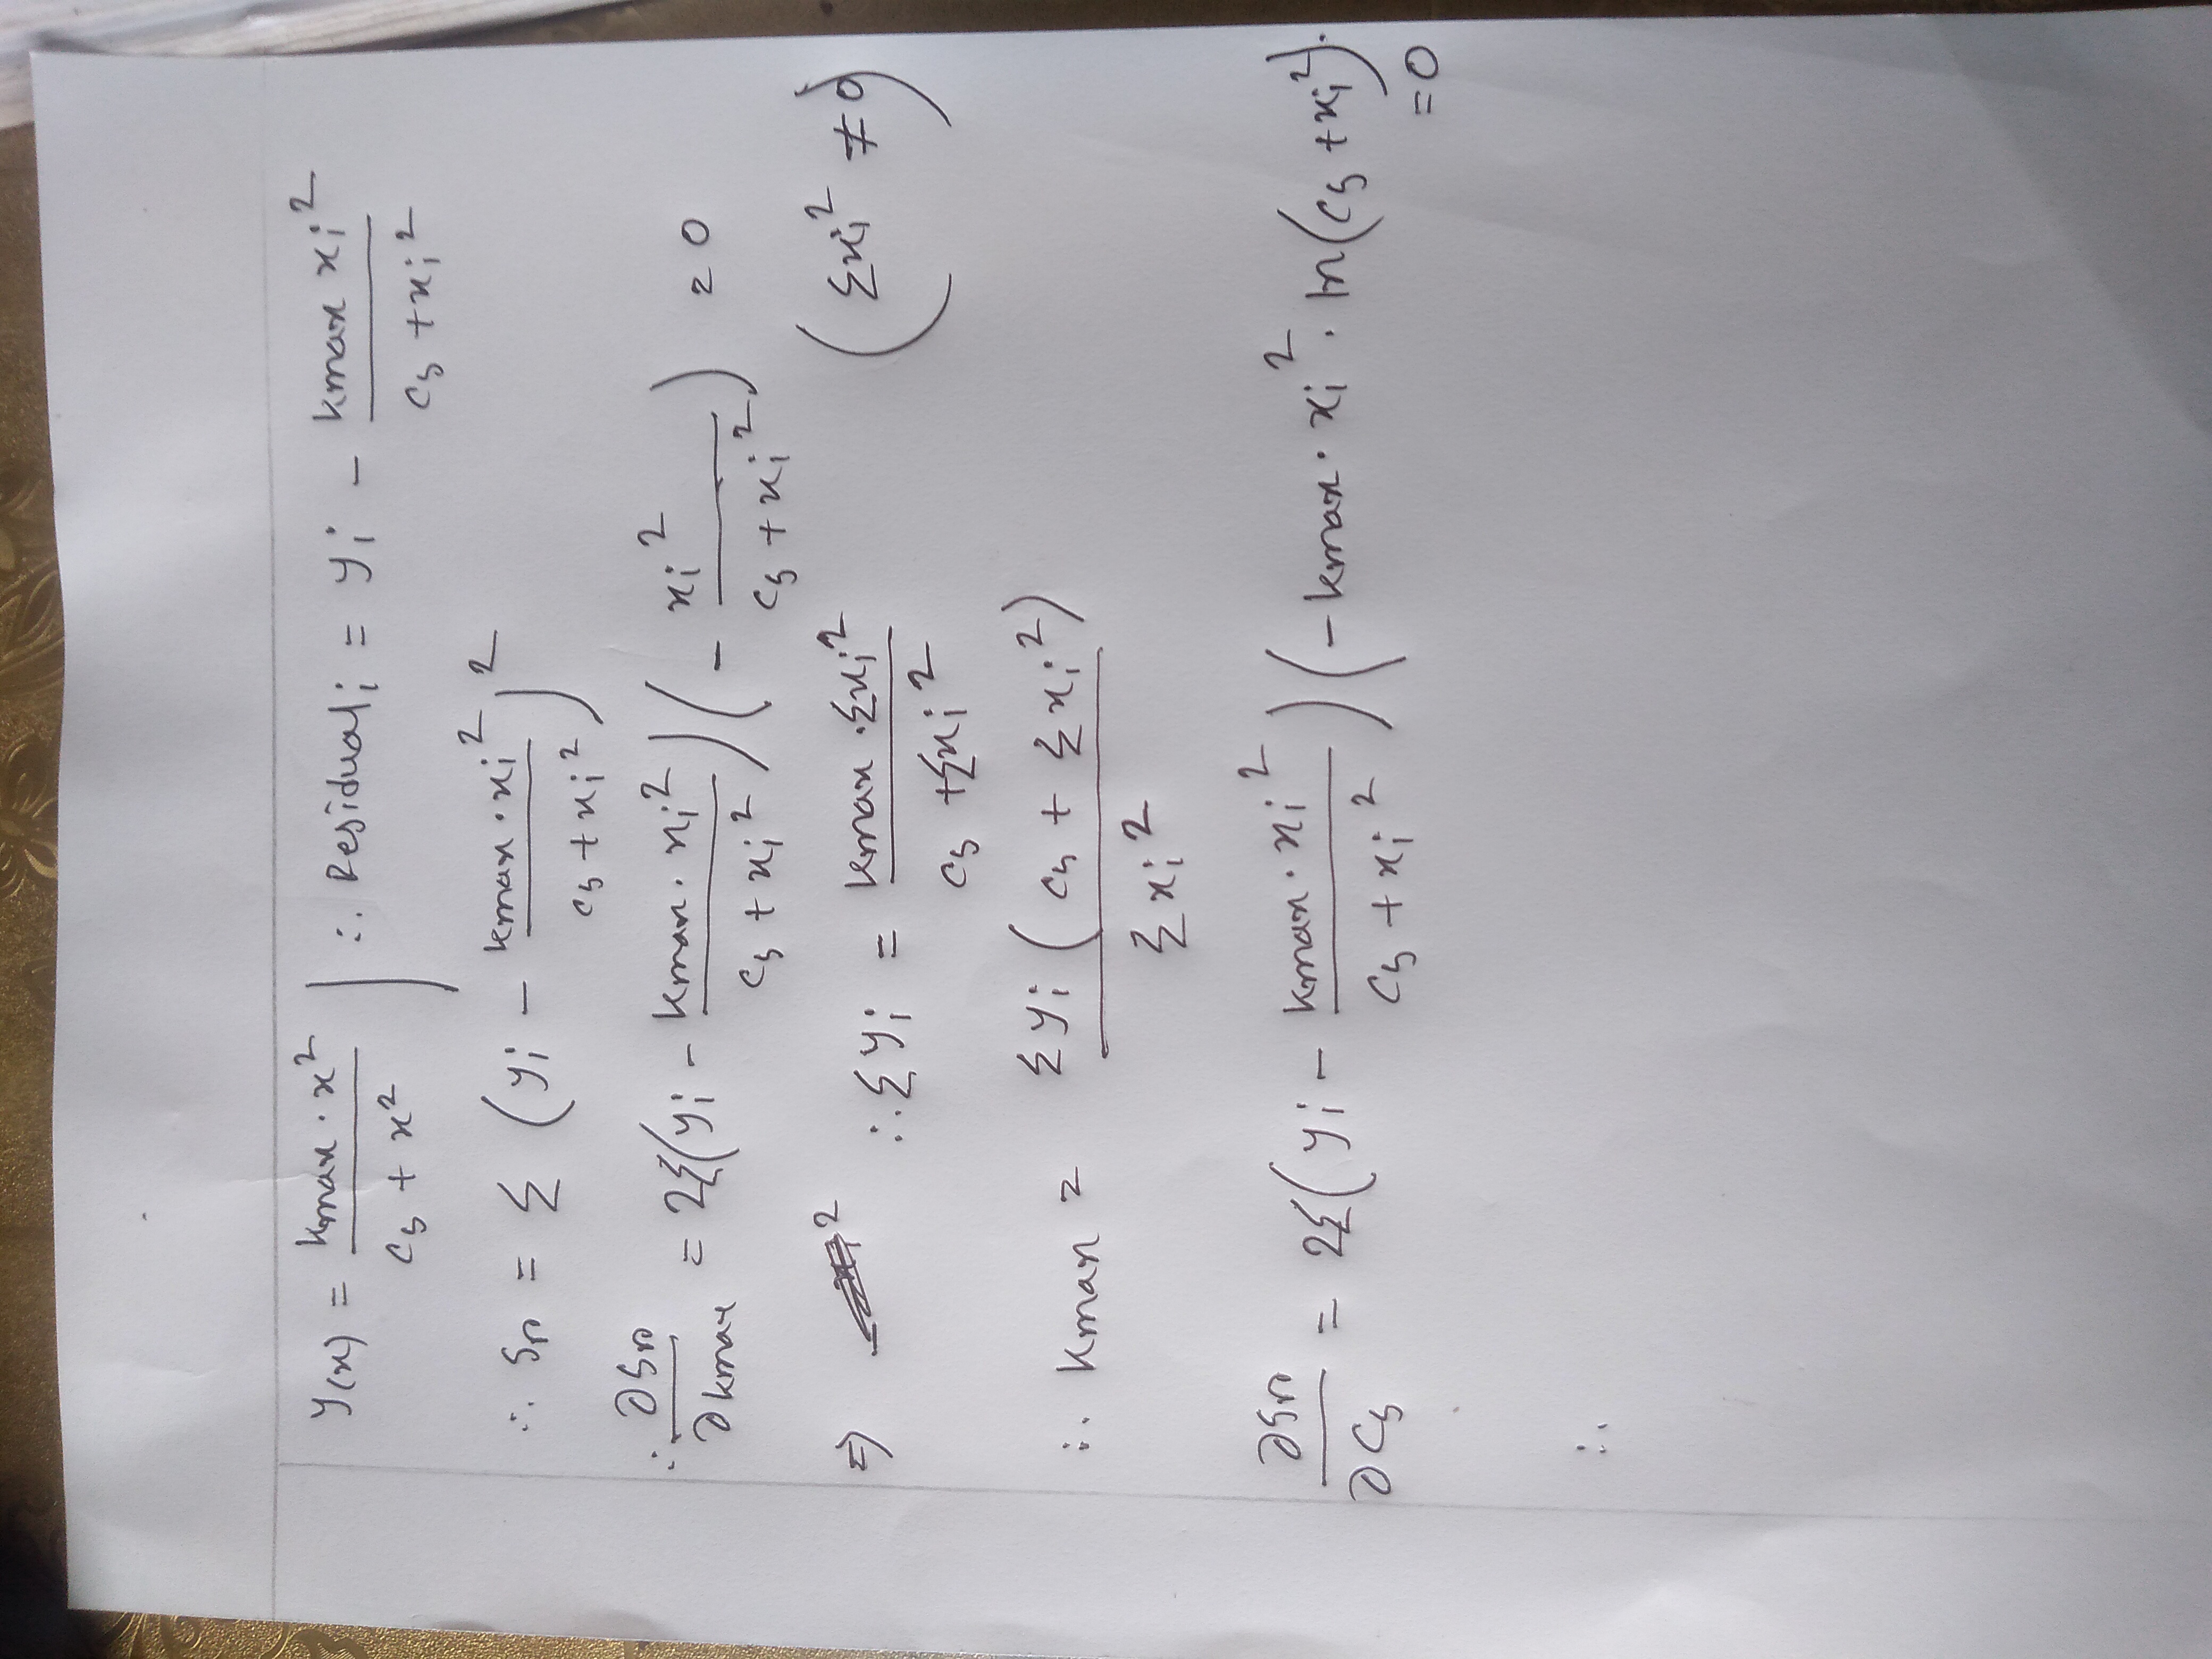 y(x) = kmax · x² / (cs + x²) | ∴ Residualᵢ = yᵢ − kmax xᵢ² / (cs + xᵢ²)
∴ Sr = Σ (yᵢ − kmax · xᵢ² / (cs + xᵢ²))²
∴ ∂Sr/∂kmax = 2Σ(yᵢ − kmax · xᵢ² / (cs + xᵢ²)) (− xᵢ² / (cs + xᵢ²)) = 0
⇒ ∴ Σyᵢ = kmax · Σxᵢ² / (cs + Σxᵢ²) (Σxᵢ² ≠ 0)
∴ kmax = Σyᵢ (cs + Σxᵢ²) / Σxᵢ²
∂Sr/∂cs = 2Σ(yᵢ − kmax · xᵢ² / (cs + xᵢ²)) (−kmax · xᵢ² · ln(cs + xᵢ²)·
= 0
∴